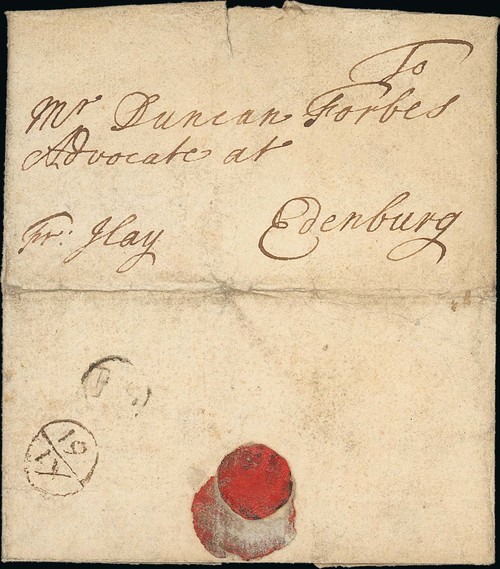 To
Mr Duncan Forbes
Advocate at
Edenburg
Fr: Ilay
19